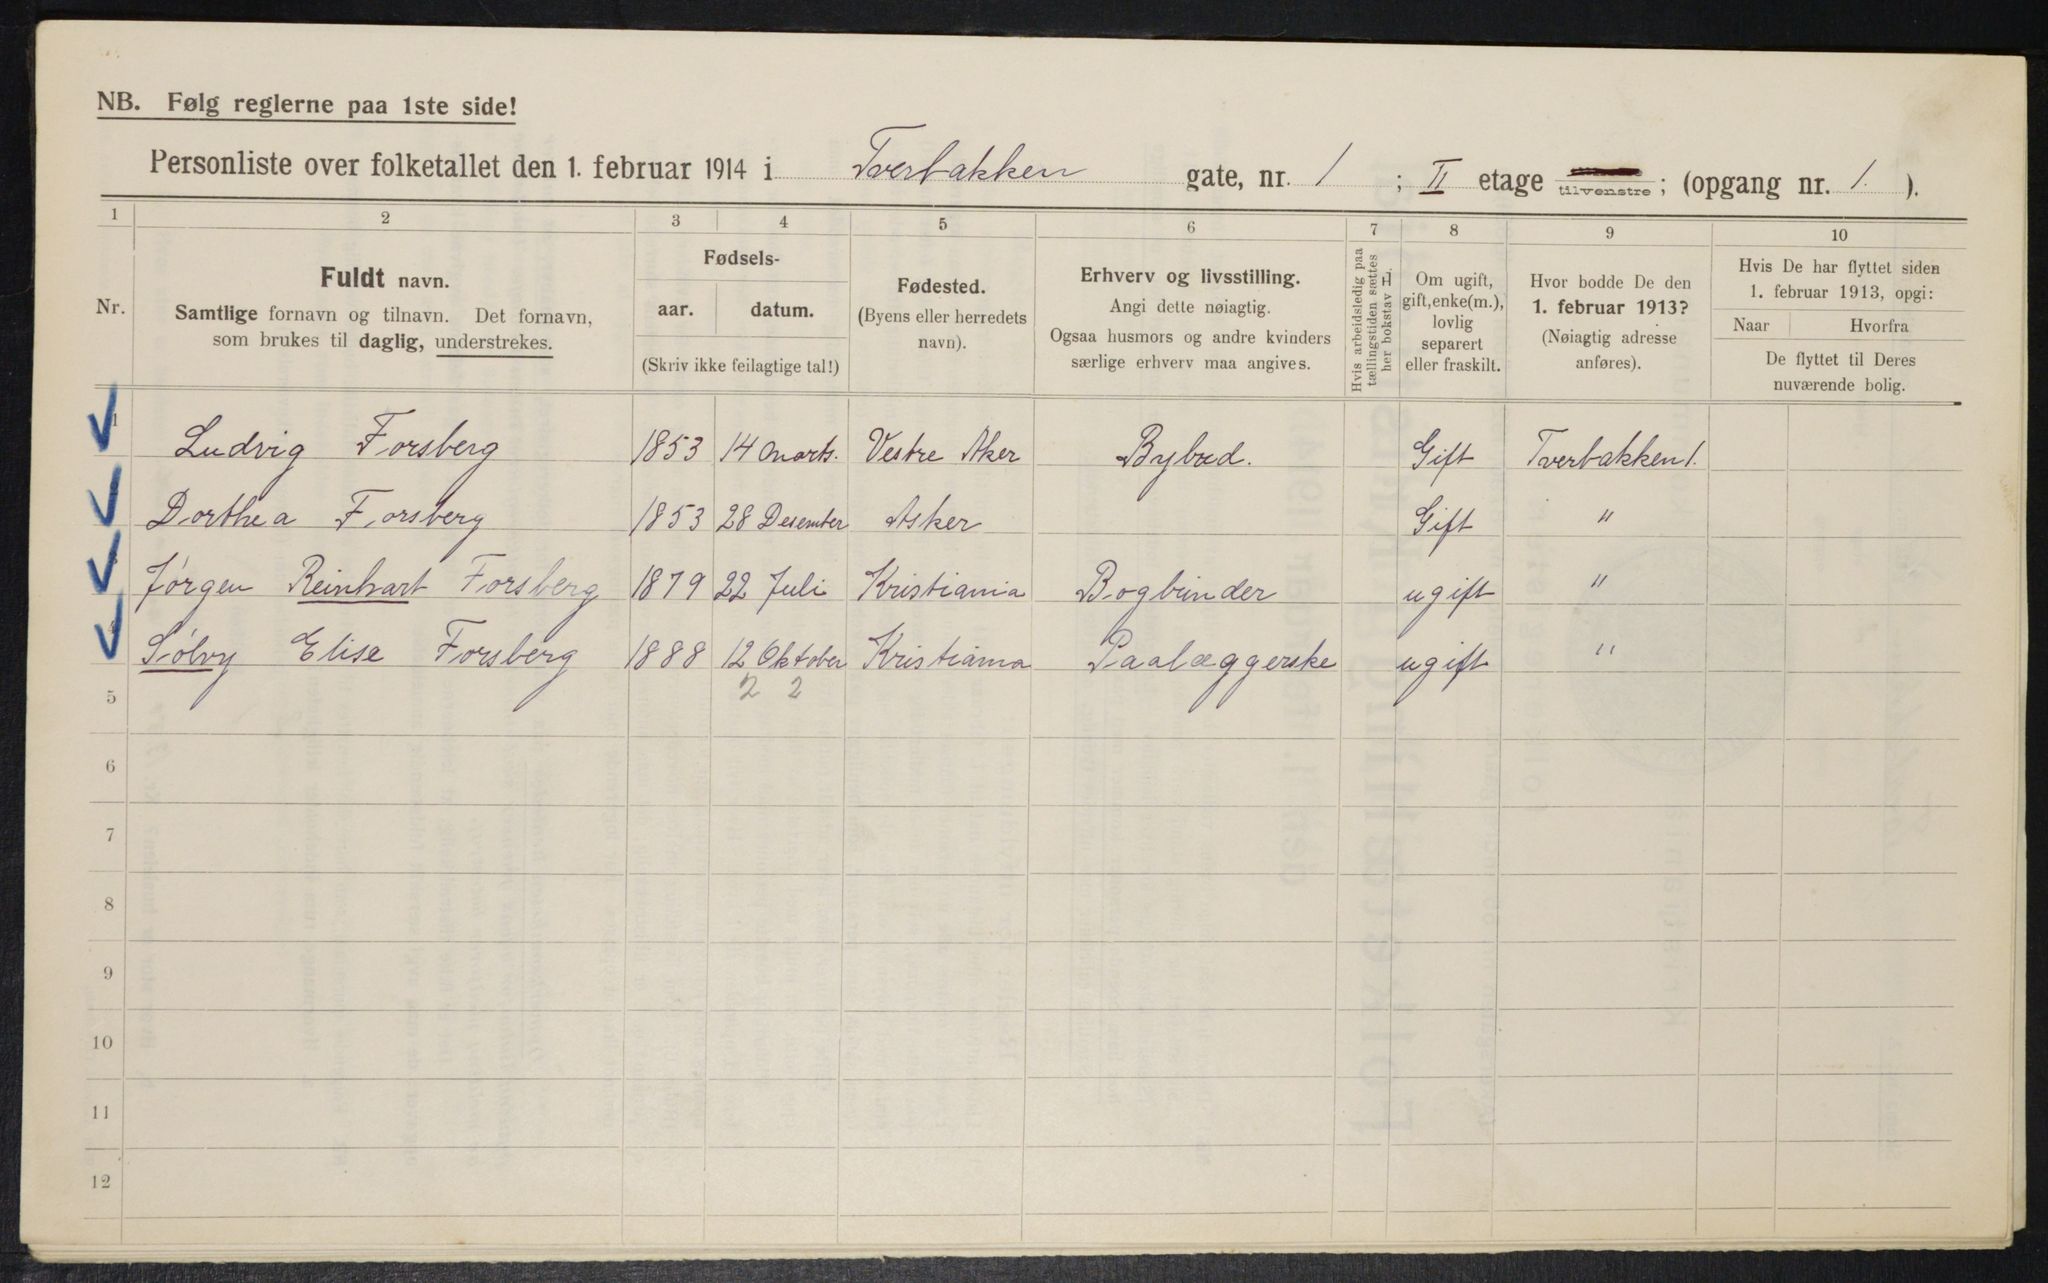 NB. Følg reglerne paa 1ste side!
Personliste over folketallet den 1. februar 1914 i Tverbakken gate, nr. 1 ; II etage tilvenstre ; (opgang nr. 1. ).
1 2 3 4 5 6 7 8 9 10
Nr.
Fuldt navn.
Samtlige fornavn og tilnavn. Det fornavn,
som brukes til daglig, understrekes.
Fødsels-
aar. datum.
(Skriv ikke feilagtige tal!)
Fødested.
(Byens eller herredets
navn).
Erhverv og livsstilling.
Angi dette nøiagtig.
Ogsaa husmors og andre kvinders
særlige erhverv maa angives.
Hvis arbeidsledig paa
tællingstiden sættes
her bokstav L.
Om ugift,
gift, enke(m.),
lovlig
separert
eller fraskilt.
Hvor bodde De den
1. februar 1913?
(Nøiagtig adresse
anføres).
Hvis De har flyttet siden
1. februar 1913, opgi:
Naar Hvorfra
De flyttet til Deres
nuværende bolig.
1 Ludvig Forsberg 1853 14 Marts. Vestre Aker Bybud. Gift Tverbakken 1.
Dorthea Forsberg 1853 28 Desember Asker Gift "
Jørgen Reinhart Forsberg 1879 22 Juli Kristiania Bogbinder ugift "
4 Sólvy Elise Forsberg 1888 12 Oktober Kristiania Paalæggerske ugift "
2 2
5
6
7
8
9
10
11
12